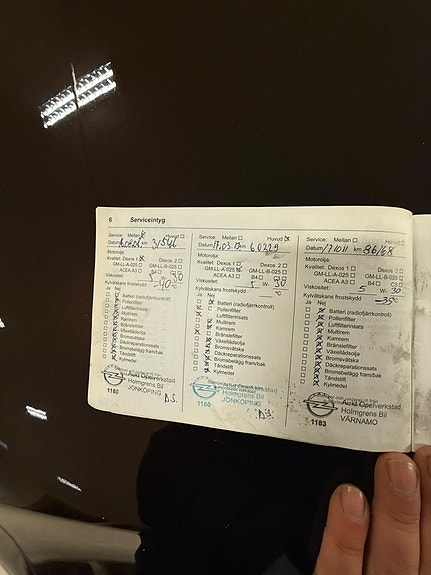 6 Serviceintyg
Service: Mellan Huvud
Datum km 31541
Motorolja
Kvalitet: Dexos 1 Dexos 2
GM-LL-A-025 GM-LL-B-025
ACEA A3 B4 C3
Viskositet: 5 W- 30
Kylvätskans frostskydd -40 °C
Ja Nej
Batteri (radiofjärrkontroll)
Pollenfilter
Luftfilterinsats
Multirem
Kamrem
Bränslefilter
Växellådsolja
Bromsvätska
Däckreparationssats
Bromsbelägg fram/bak
Tändstift
Kylmedel
Aukt Opelverkstad
Holmgrens Bil
JÖNKÖPING
1180
Service: Mellan Huvud
Datum 17.03. km 60229
Motorolja
Kvalitet: Dexos 1 Dexos 2
GM-LL-A-025 GM-LL-B-025
ACEA A3 B4 C3
Viskositet: 5 W- 30
Kylvätskans frostskydd °C
Ja Nej
Batteri (radiofjärrkontroll)
Pollenfilter
Luftfilterinsats
Multirem
Kamrem
Bränslefilter
Växellådsolja
Bromsvätska
Däckreparationssats
Bromsbelägg fram/bak
Tändstift
Kylmedel
Aukt Opelverkstad
Holmgrens Bil
JÖNKÖPING
1180
Service: Mellan Huvud
Datum km 86168
Motorolja
Kvalitet: Dexos 1 Dexos 2
GM-LL-A-025 GM-LL-B-025
ACEA A3 B4 C3
Viskositet: 5 W- 30
Kylvätskans frostskydd -35 °C
Ja Nej
Batteri (radiofjärrkontroll)
Pollenfilter
Luftfilterinsats
Multirem
Kamrem
Bränslefilter
Växellådsolja
Bromsvätska
Däckreparationssats
Bromsbelägg fram/bak
Tändstift
Kylmedel
Aukt Opelverkstad
Holmgrens Bil
VÄRNAMO
1183